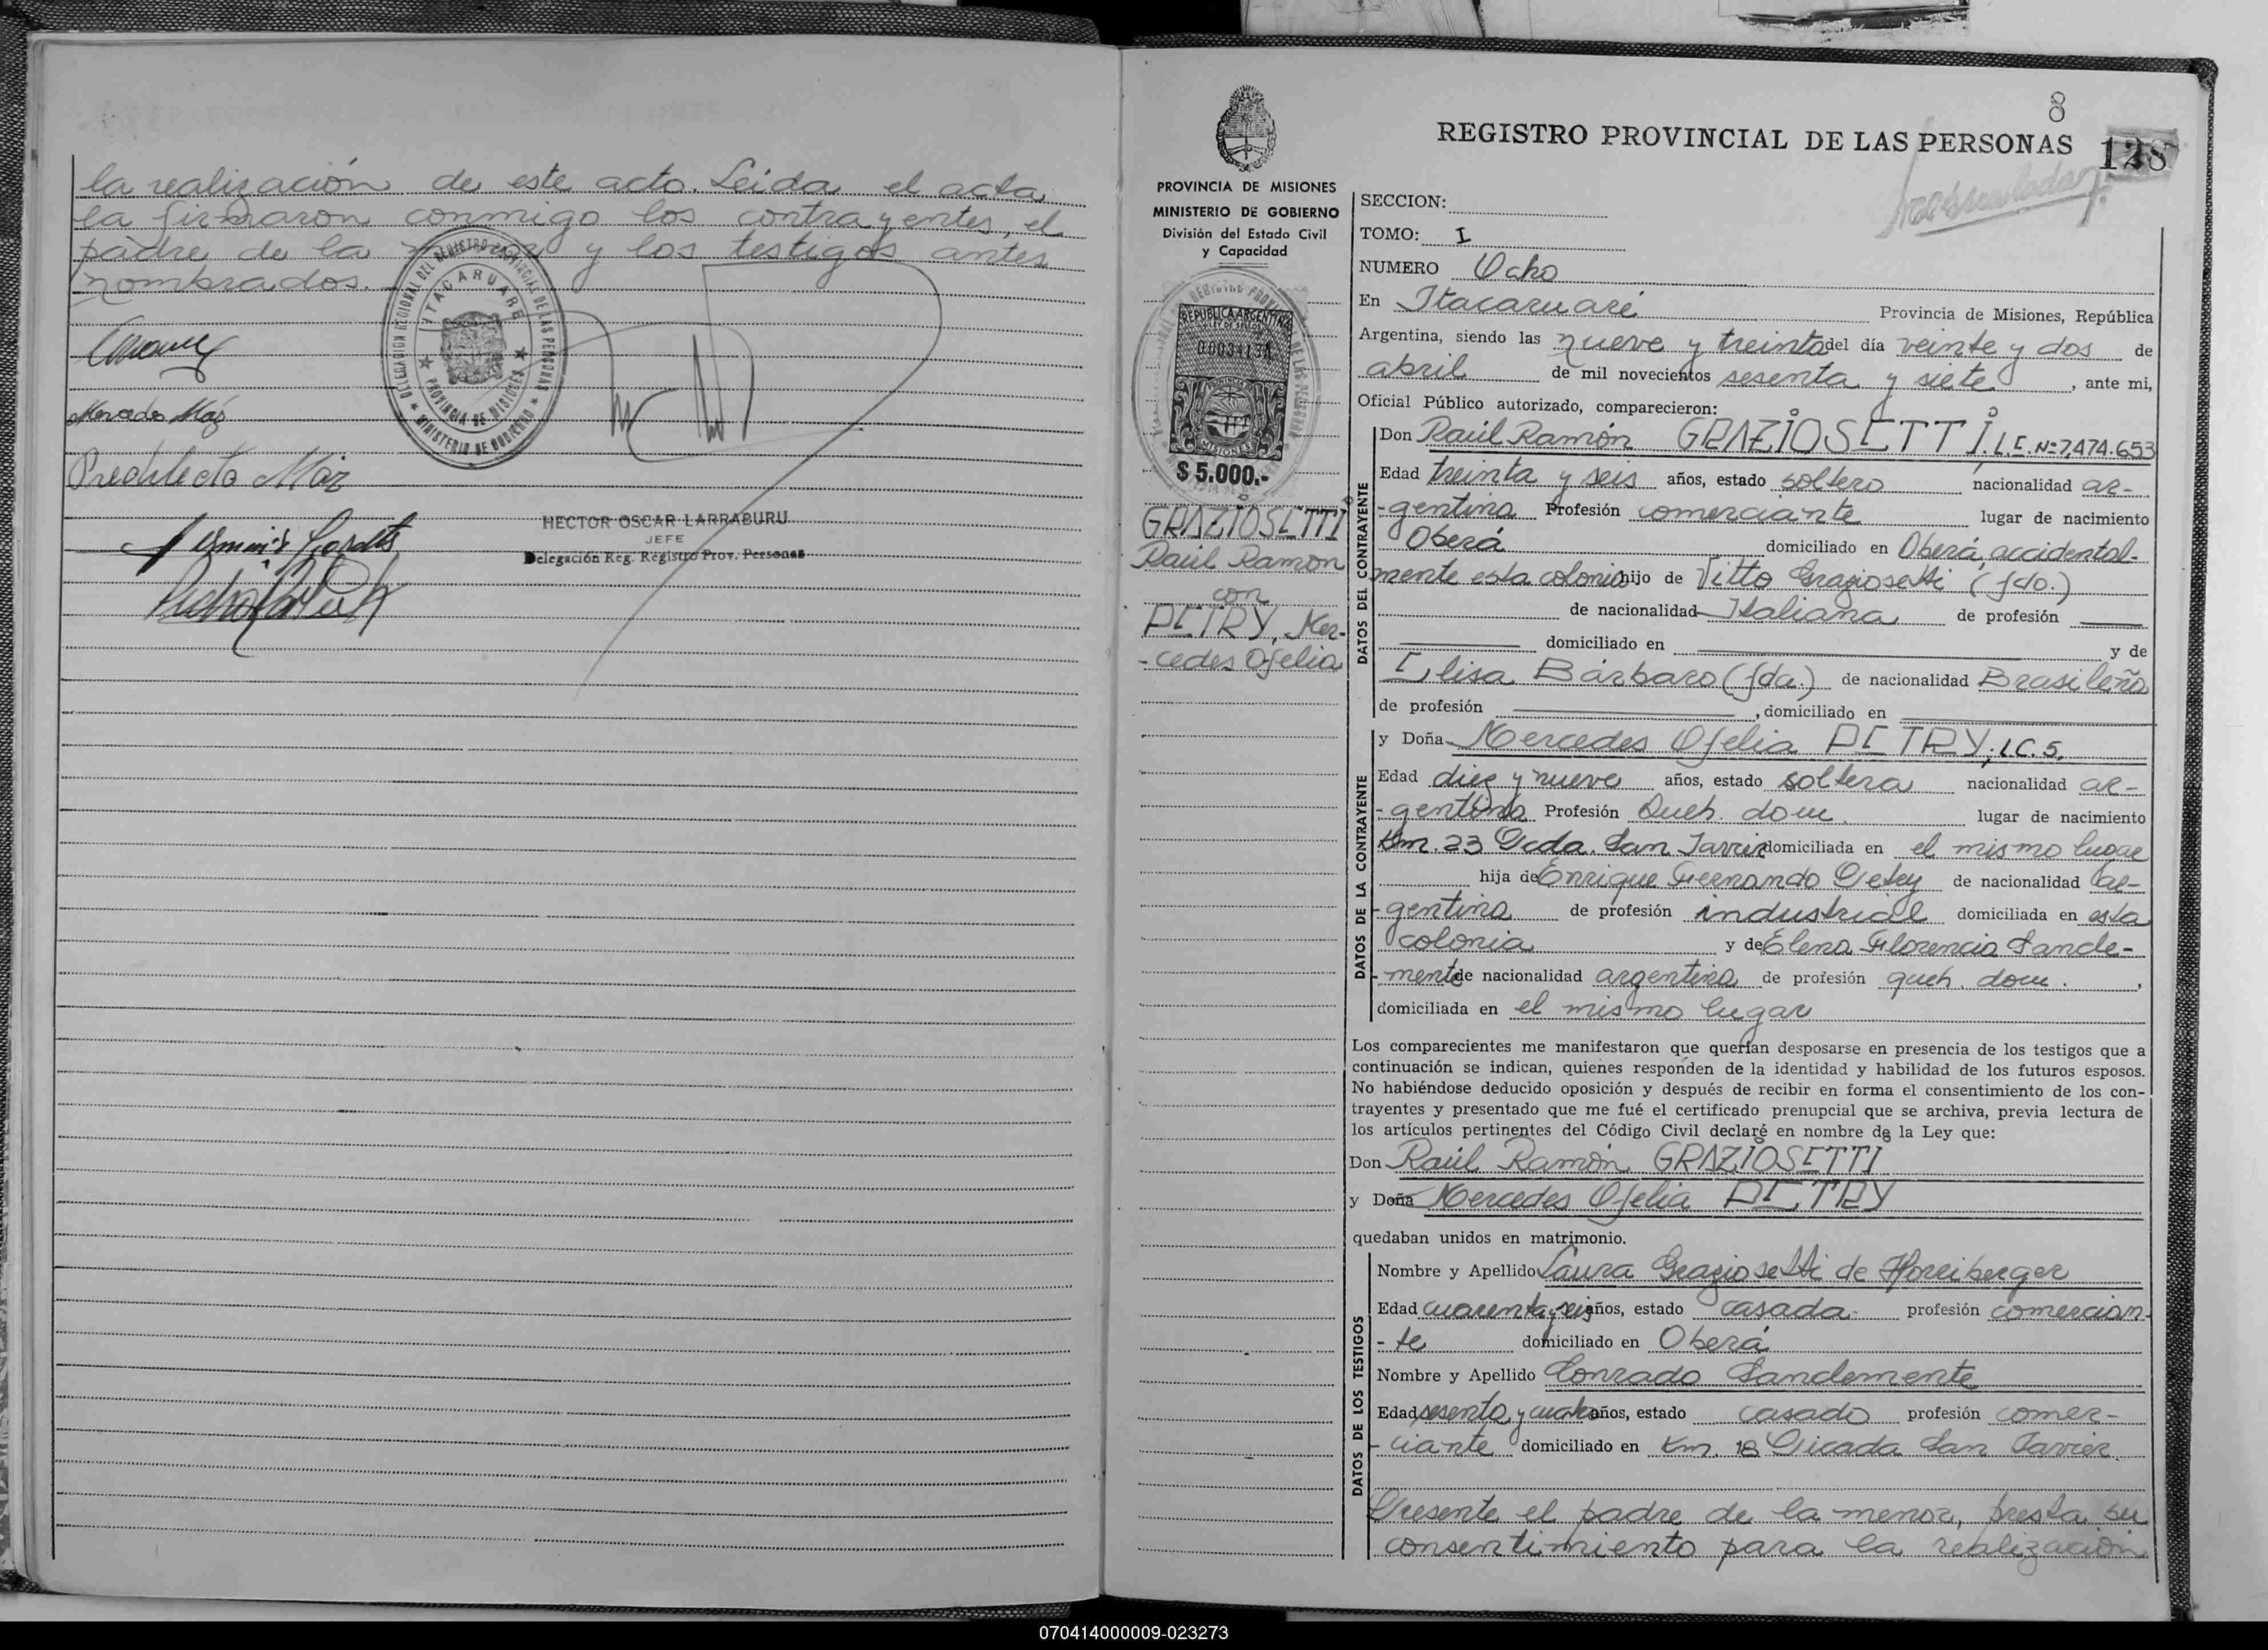 la realización de este acto. Leida el acta
la firmaron conmigo los contrayentes, el
padre de la menor y los testigos antes
nombrados.-
DELEGACION REGIONAL DEL REGISTRO PROVINCIAL DE LAS PERSONAS
ITACARUARE
PROVINCIA DE MISIONES
MINISTERIO DE GOBIERNO
Mercedes Máz
Predilecto Máz
HECTOR OSCAR LARRABURU
JEFE
Delegación Reg. Registro Prov. Personas
8
REGISTRO PROVINCIAL DE LAS PERSONAS
128
PROVINCIA DE MISIONES
MINISTERIO DE GOBIERNO
División del Estado Civil
y Capacidad
REPUBLICA ARGENTINA
LEY DE SELLOS
MISIONES
$ 5.000.-
GRAZIOSETTI
Raúl Ramón
con
PETRY, Mer-
-cedes Ofelia
SECCION:
TOMO: I
NUMERO Ocho
En Itacaruaré Provincia de Misiones, República
Argentina, siendo las nueve y treinta del día veinte y dos de
abril de mil novecientos sesenta y siete, ante mi,
Oficial Público autorizado, comparecieron:
DATOS DEL CONTRAYENTE
Don Raúl Ramón GRAZIOSETTI, L.E. Nº 7.474.653
Edad treinta y seis años, estado soltero nacionalidad ar-
-gentina Profesión comerciante lugar de nacimiento
Oberá domiciliado en Oberá, accidental-
mente esta colonia hijo de Vitto Graziosetti (fdo.)
de nacionalidad Italiana de profesión
domiciliado en y de
Elisa Bárbaro (fda.) de nacionalidad Brasileña
de profesión , domiciliado en
DATOS DE LA CONTRAYENTE
y Doña Mercedes Ofelia PETRY, L.C. 5,
Edad diez y nueve años, estado soltera nacionalidad ar-
-gentina Profesión Queh. dom. lugar de nacimiento
Km. 23 Pcda. San Javier domiciliada en el mismo lugar
hija de Enrique Fernando Petry de nacionalidad ar-
-gentina de profesión industrial domiciliada en esta
colonia y de Elena Florencia Sande-
-mente de nacionalidad argentina de profesión queh. dom.,
domiciliada en el mismo lugar
Los comparecientes me manifestaron que querían desposarse en presencia de los testigos que a
continuación se indican, quienes responden de la identidad y habilidad de los futuros esposos.
No habiéndose deducido oposición y después de recibir en forma el consentimiento de los con-
trayentes y presentado que me fué el certificado prenupcial que se archiva, previa lectura de
los artículos pertinentes del Código Civil declaré en nombre de la Ley que:
Don Raúl Ramón GRAZIOSETTI
y Doña Mercedes Ofelia PETRY
quedaban unidos en matrimonio.
DATOS DE LOS TESTIGOS
Nombre y Apellido Laura Graziosetti de Horeiberger
Edad cuarenta y seis años, estado casada profesión comercian-
-te domiciliado en Oberá
Nombre y Apellido Conrado Sandemente
Edad sesenta y cuatro años, estado casado profesión comer-
-ciante domiciliado en Km. 18 Picada San Javier
Presente el padre de la menor, presta su
consentimiento para la realización
070414000009-023273